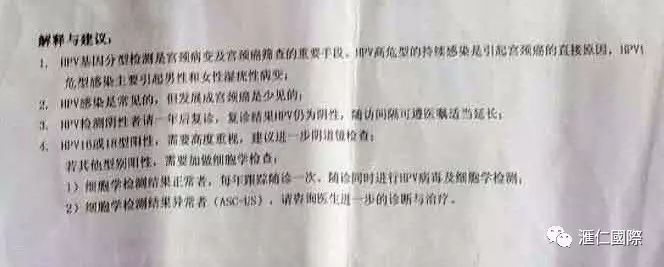 解释与建议:
1. HPV基因分型检测是宫颈病变及宫颈癌筛查的重要手段。HPV高危型的持续感染是引起宫颈癌的直接原因，HPV
危型感染主要引起男性和女性湿疣性病变;
2. HPV感染是常见的，但发展成宫颈癌是少见的;
3. HPV检测阴性者请一年后复诊，复诊结果HPV仍为阴性，随访间隔可遵医嘱适当延长;
4. HPV16或18型阳性，需要高度重视，建议进一步阴道镜检查;
若其他型别阳性，需要加做细胞学检查:
1）细胞学检测结果正常者，每年跟踪随诊一次。随诊同时进行HPV病毒及细胞学检测;
2）细胞学检测结果异常者（ASC-US），请咨询医生进一步的诊断与治疗。
滙仁國際